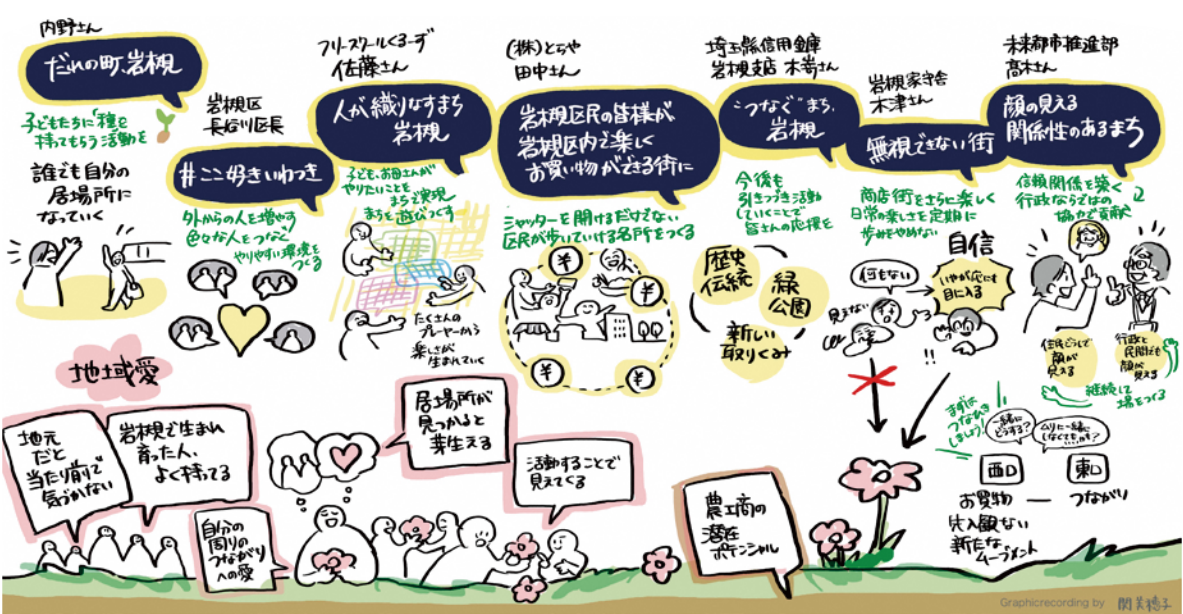 内野さん
だれの町、岩槻
子どもたちに「種を
持ってもらう活動を
誰でも自分の
居場所に
なっていく
岩槻区
長谷川区長
#ここ好きいわつき
外からの人を増やす
色々な人をつなぐ
やりやすい環境を
つくる
フリースクールくるーず
佐藤さん
人が織りなすまち
岩槻
子ども、お母さんが
やりたいことを
まちで実現
まちを遊びつくす
たくさんの
プレーヤーから
楽しさが
生まれていく
(株)とらや
田中さん
岩槻区民の皆様が
岩槻区内で楽しく
お買い物ができる街に
シャッターを開けるだけでない
区民が歩いていける名所をつくる
¥
¥
¥
¥
埼玉縣信用金庫
岩槻支店 本嵜さん
"つなぐ"まち、
岩槻
今後も
引きつづき活動
していくことで
皆さんの応援を
歴史
伝統
緑
公園
新しい
取りくみ
岩槻家守舎
木津さん
無視できない街
商店街をさらに楽しく
日常の楽しさを定期に
歩みをやめない
自信
何もない
見えない
な
いやが応にも
目に入る
!!
未来都市推進部
髙木さん
顔の見える
関係性のあるまち
信頼関係を築く
行政ならではの
協力で貢献
住民どうしで
顔が
見える
行政と
民間でも
顔が
見える
継続して
場をつくる
まずは
つなひき
しましょう!
一緒に
どうする?
ムリに一緒に
しなくても、かも?
西口
東口
お買物 ― つながり
先入観ない
新たな
ムーブメント
地域愛
地元
だと
当たり前で
気づかない
岩槻で生まれ
育った人、
よく持ってる
自分の
周りの
つながり
への愛
居場所が
見つかると
芽生える
活動することで
見えてくる
農工商の
潜在
ポテンシャル
Graphicrecording by 関美穂子